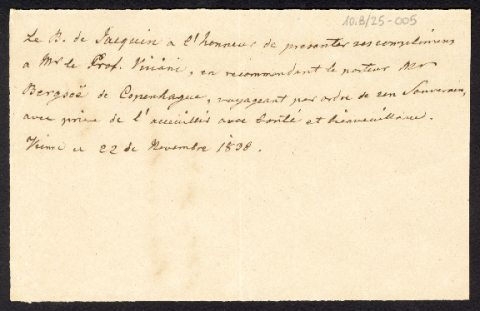 10.B/25-005
Le B. de Jacquin a l'honneur de presenter ses complimens
a Mr le Prof. Viviani, en recommandant le porteur Mr
Bergsoë de Copenhague, voyageant par ordre de son Souverain,
avec prière de l'acceuillir avec bonté et bienveuillance.
Vienne ce 22 de Novembre 1838.